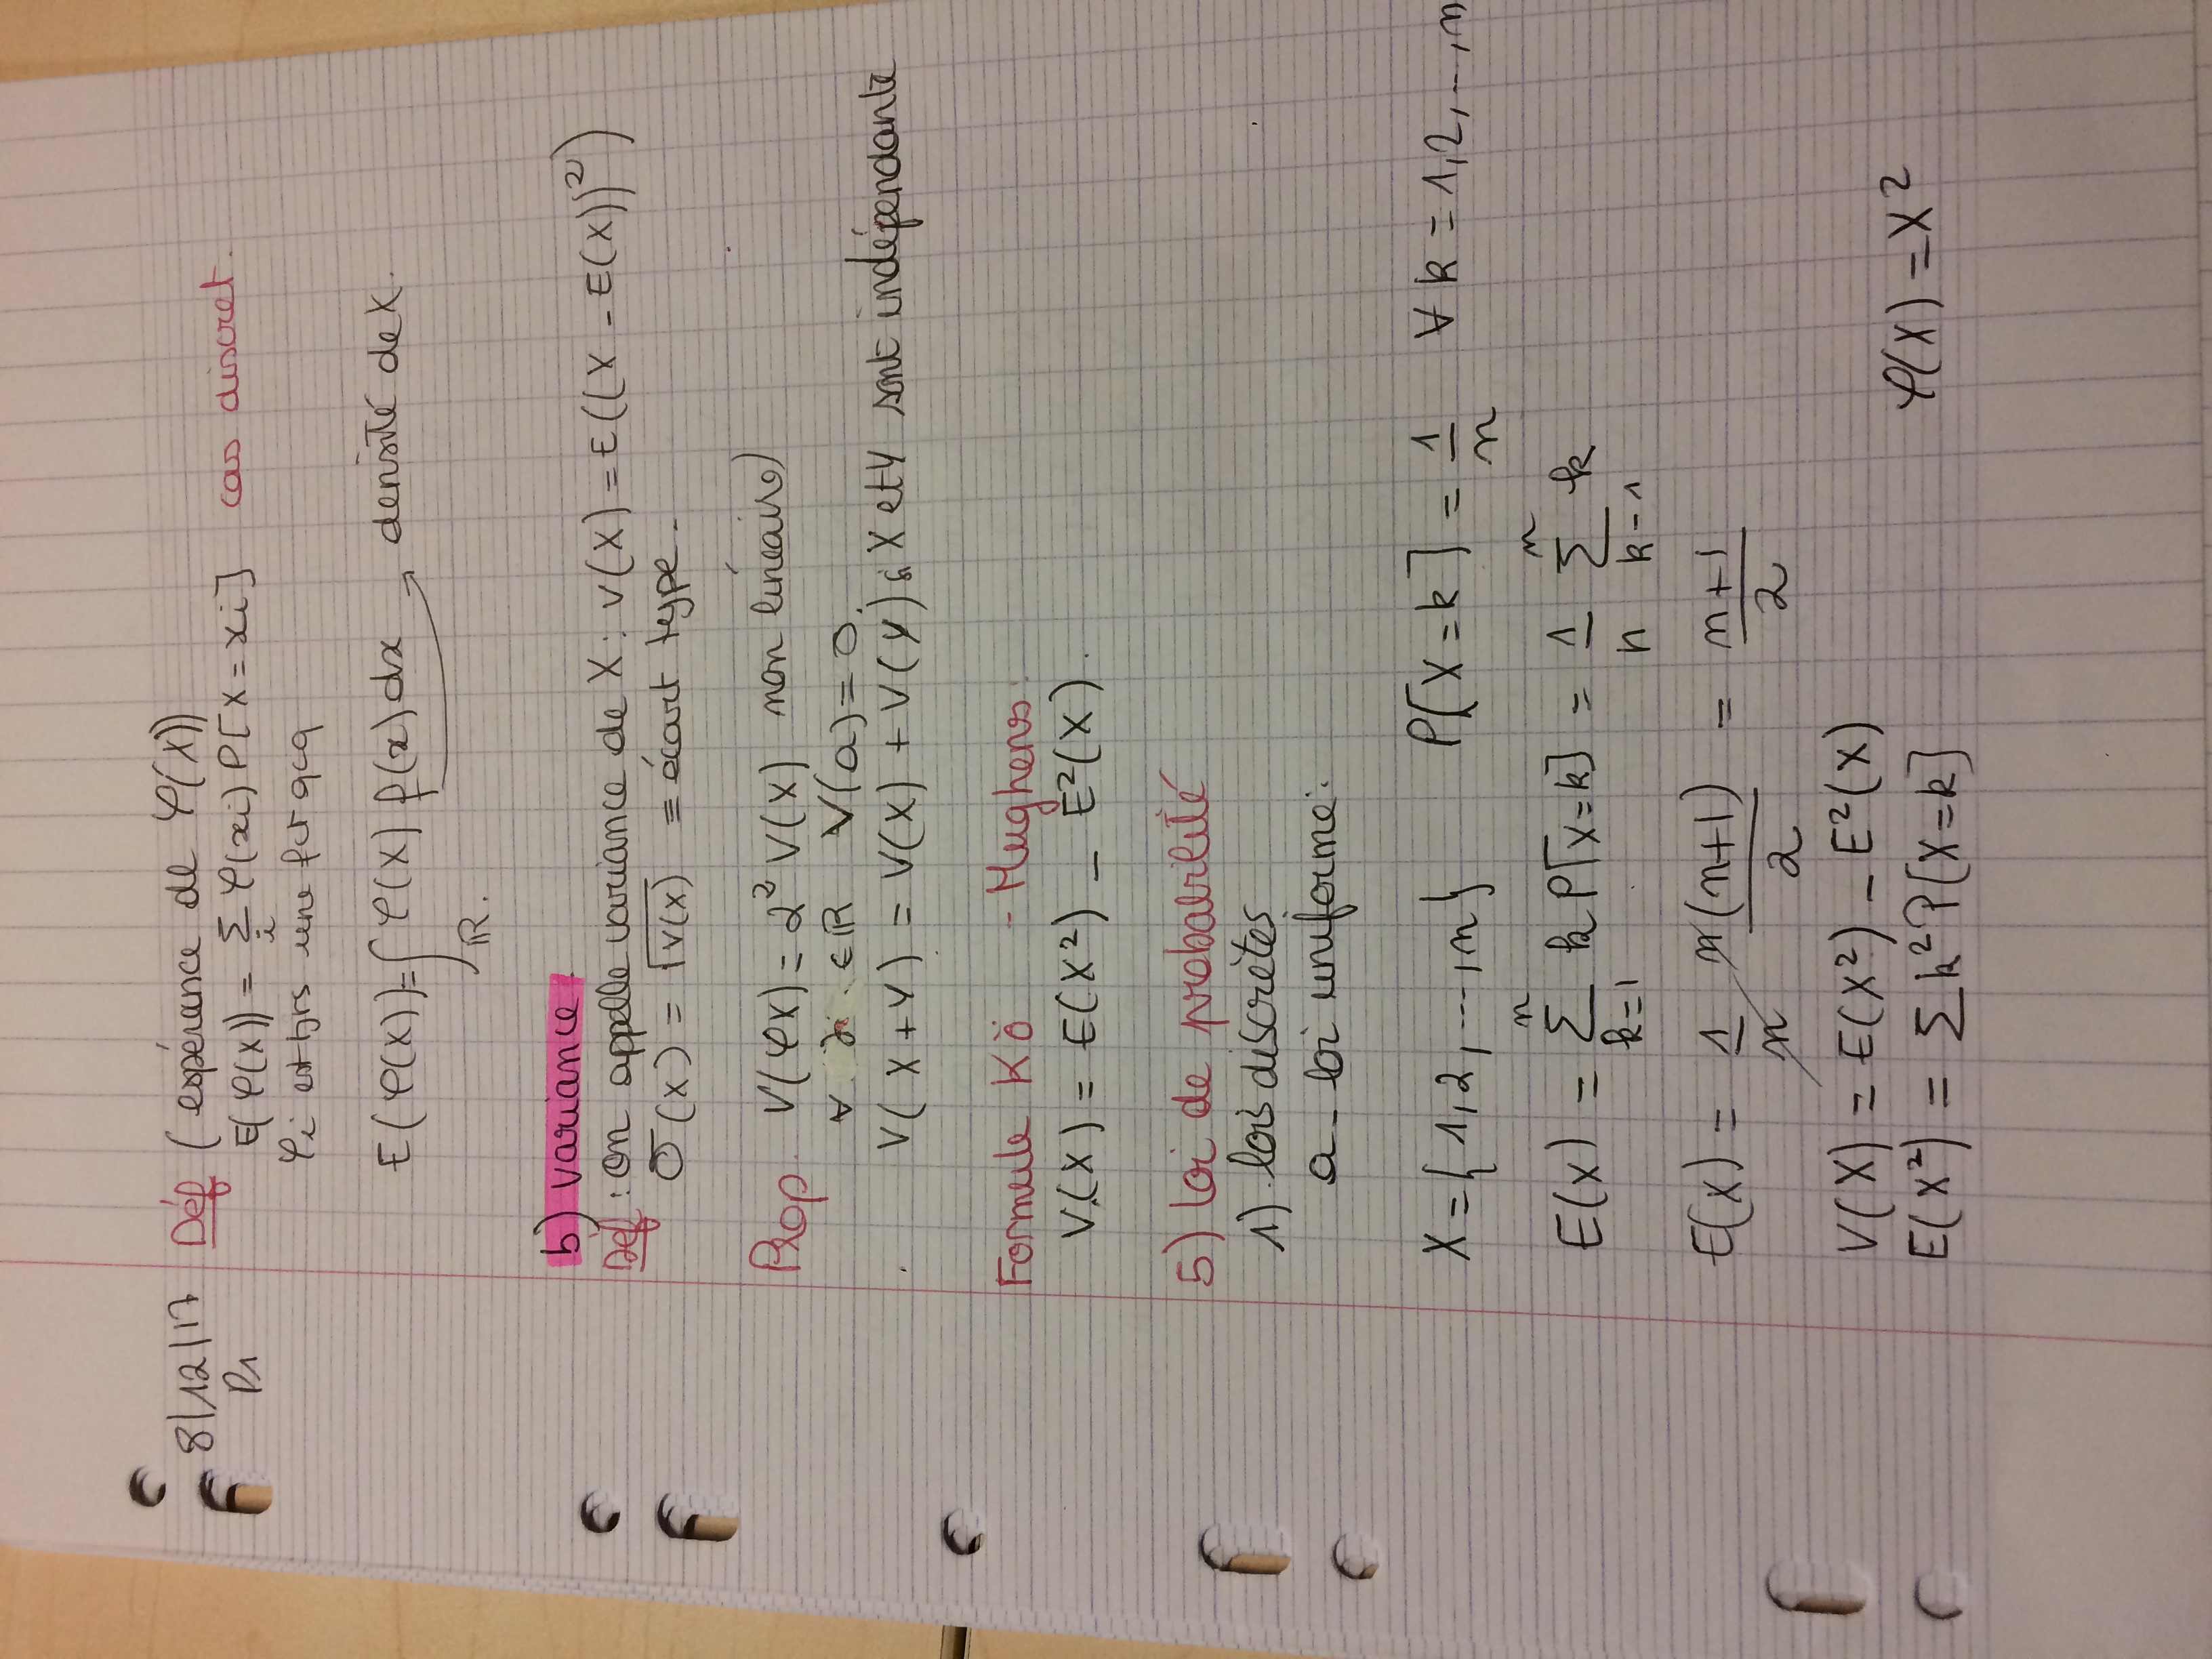 8/12/17 Déf (espérance de φ(X))
P1
E(φ(X)) = Σ_i φ(xi) P[X = xi] cas discret.
φi est tjrs une fct qcq
E(φ(X)) = ∫_ℝ φ(X) f(x) dx → densité de X.
b) variance.
Déf : On appelle variance de X : V(X) = E((X - E(X))²)
σ(X) = √V(X) = écart type.
Prop. V(φX) = 2² V(X) non linéaire)
∀ ∈ ℝ V(a) = 0.
V(X + Y) = V(X) + V(Y) si X et Y sont indépendante
Formule Kö - Hughens
V(X) = E(X²) - E²(X).
5) loi de probabilité
1) lois discrètes
a - loi uniforme :
X = {1, 2, ..., n} P[X = k] = 1/n ∀ k = 1, 2, ..., n
E(X) = Σ_{k=1}^{n} k P[X = k] = 1/n Σ_{k-1}^{n} k
E(X) = 1/n n(n+1)/2 = n+1/2
V(X) = E(X²) - E²(X)
E(X²) = Σ k² P[X = k] φ(X) = X²